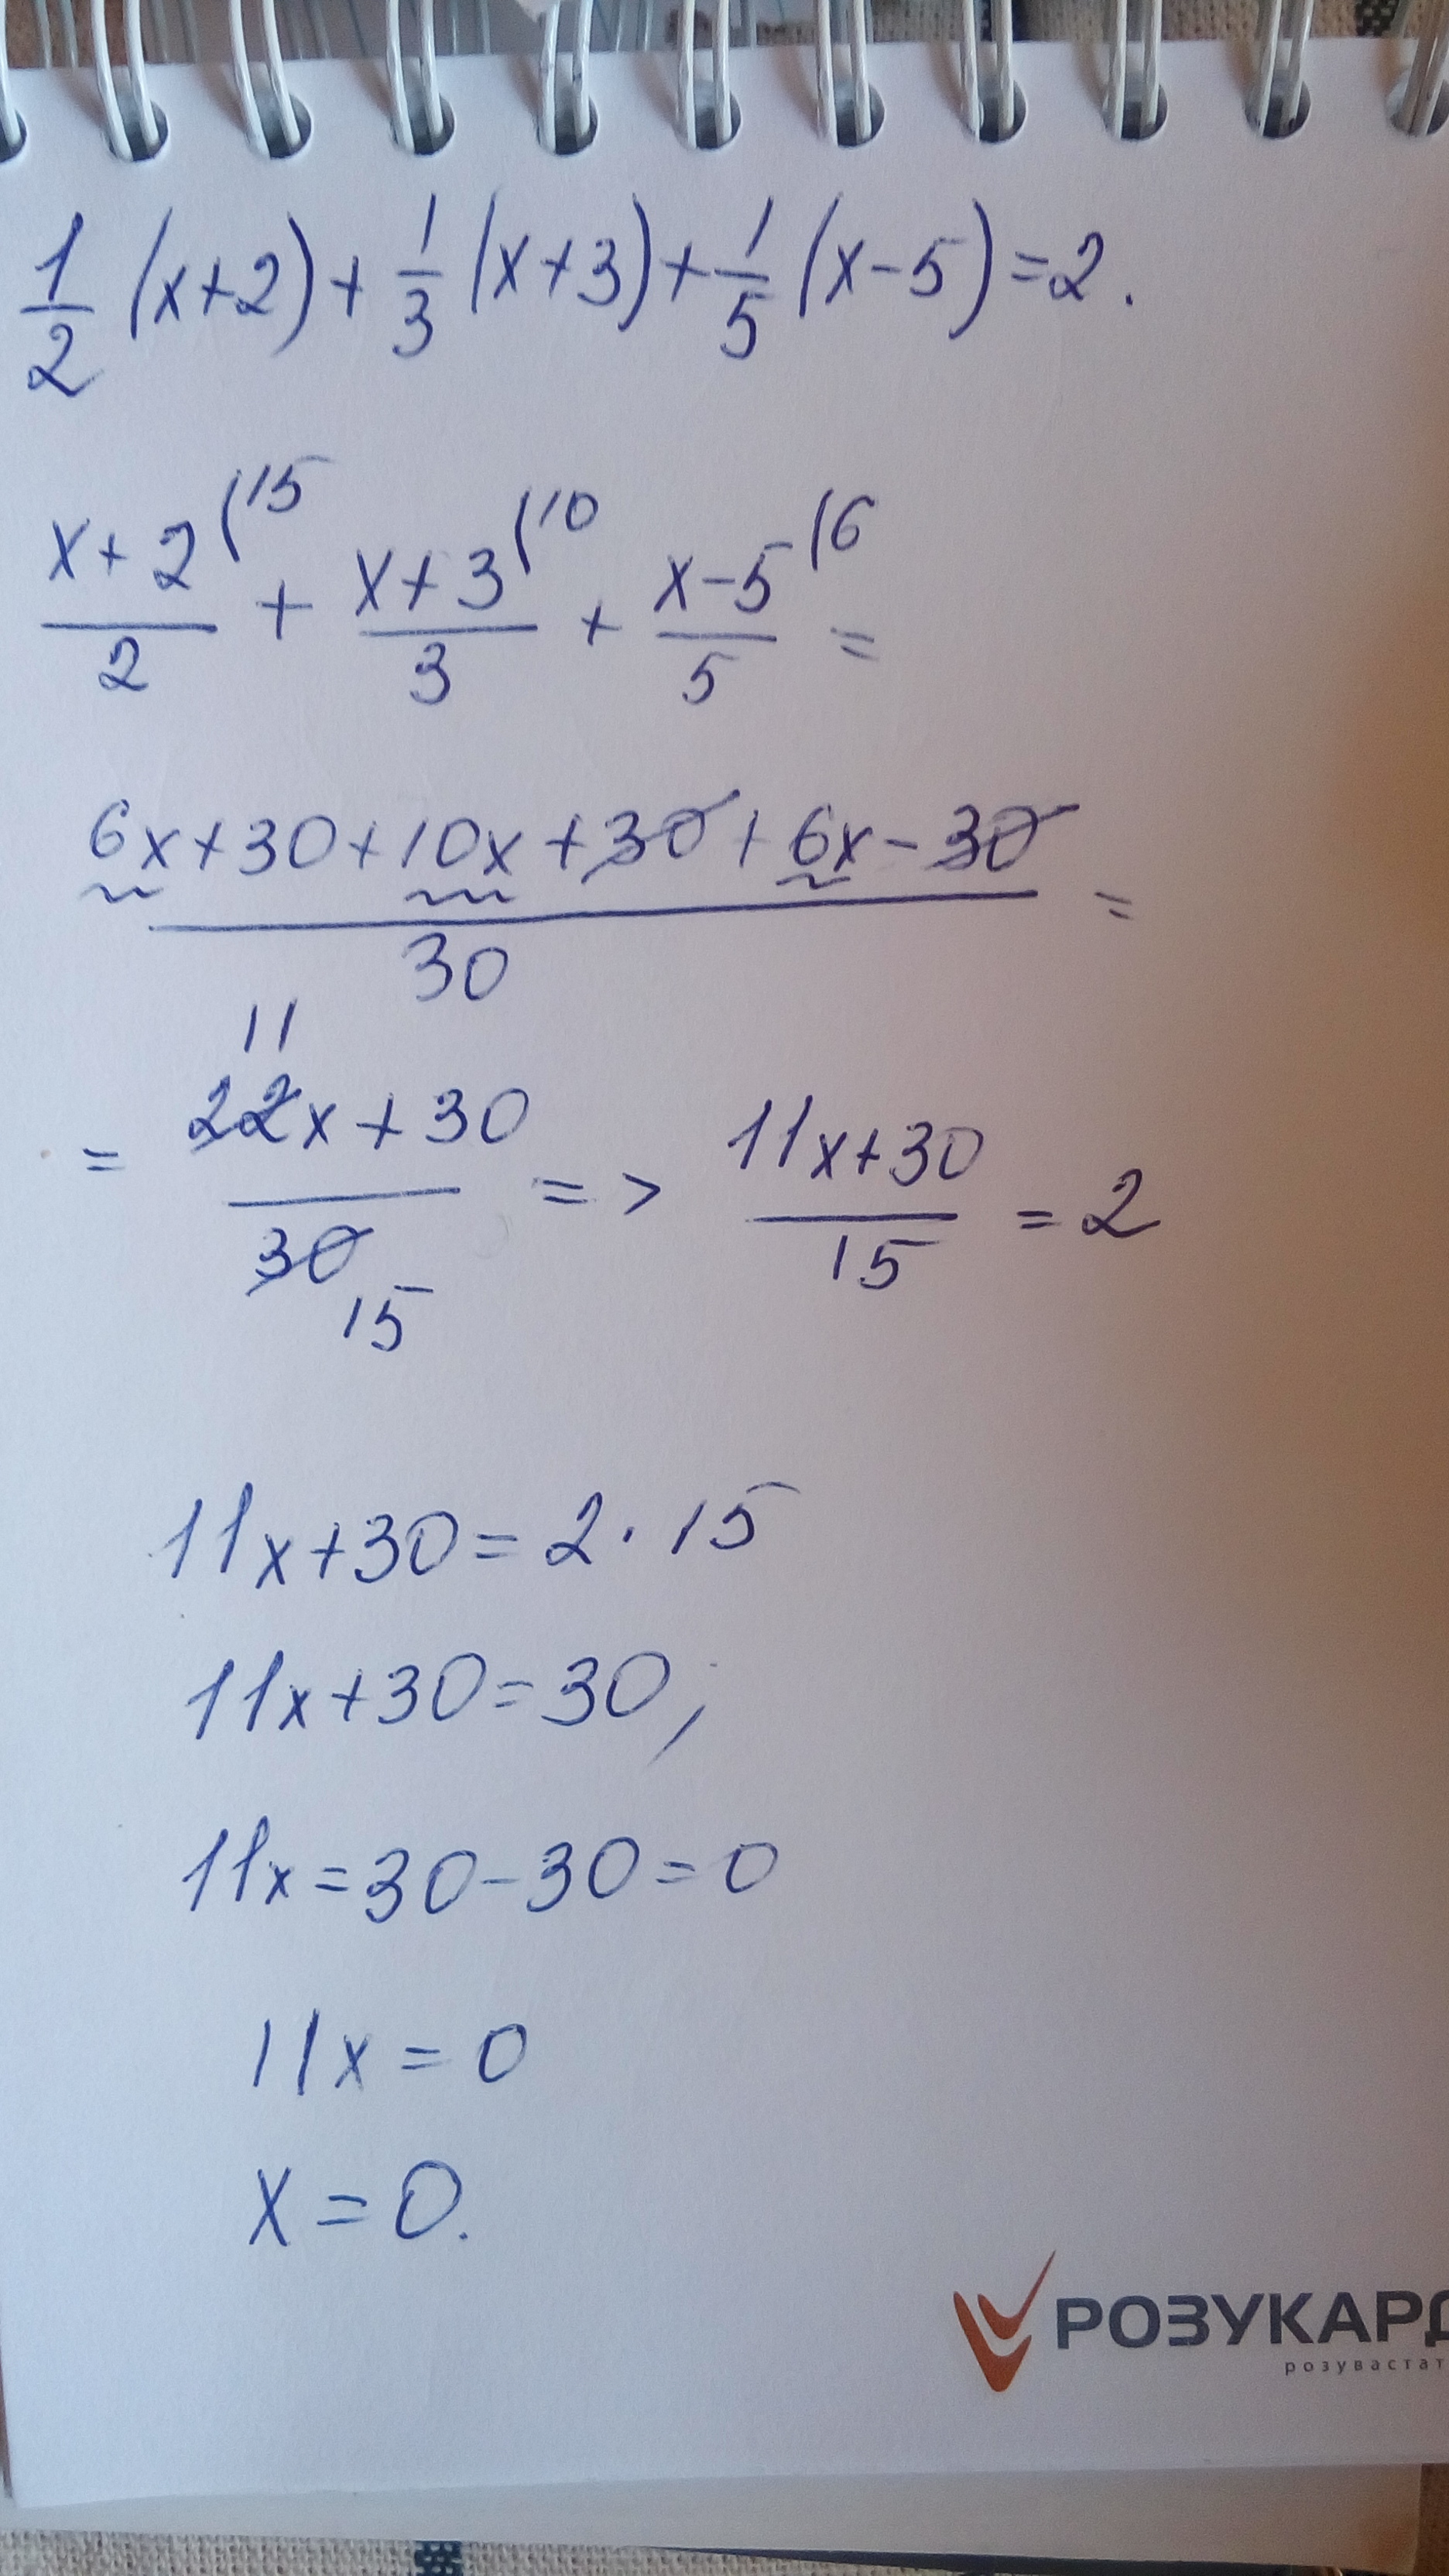 1/2 (x+2)+ 1/3 (x+3)+ 1/5 (x-5)=2.
(x+2)/2 (15 + (x+3)/3 (10 + (x-5)/5 (6 =
(6x+30+10x+30+6x-30)/30 =
11
= (22x+30)/30 => (11x+30)/15 = 2
15
11x+30=2·15
11x+30=30;
11x=30-30=0
11x=0
x=0.
РОЗУКАРД
розувастат